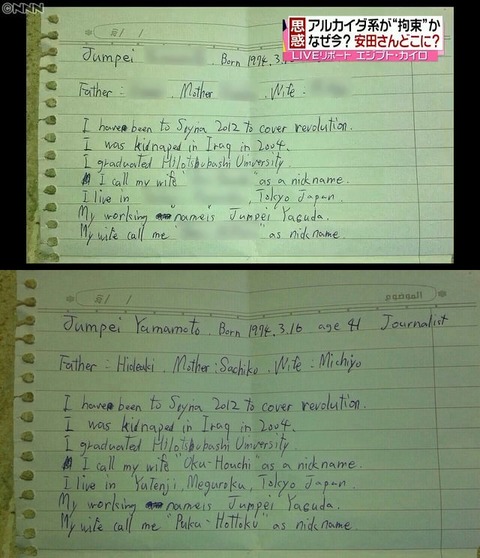 ©NNN
思惑
アルカイダ系が“拘束”か
なぜ今？安田さんどこに？
LIVEリポート エジプト・カイロ
Jumpei Born 1974.3.1
Father: , Mother , Wife:
I have been to Syria 2012 to cover revolution.
I was kidnaped in Iraq in 2004.
I graduated Hitotsubashi University.
I call my wife " " as a nickname.
I live in , Tokyo Japan.
My working name is Jumpei Yasuda.
My wife call me " " as nickname.
Jumpei Yamamoto, Born 1974.3.16 age 41 Journalist
Father: Hideaki, Mother: Sachiko, Wife: Michiyo
I have been to Syria 2012 to cover revolution.
I was kidnaped in Iraq in 2004.
I graduated Hitotsubashi University.
I call my wife "Oku-Houchi" as a nickname.
I live in Yutenji, Meguroku, Tokyo Japan.
My working name is Jumpei Yasuda.
My wife call me "Puku-Hottoku" as nickname.